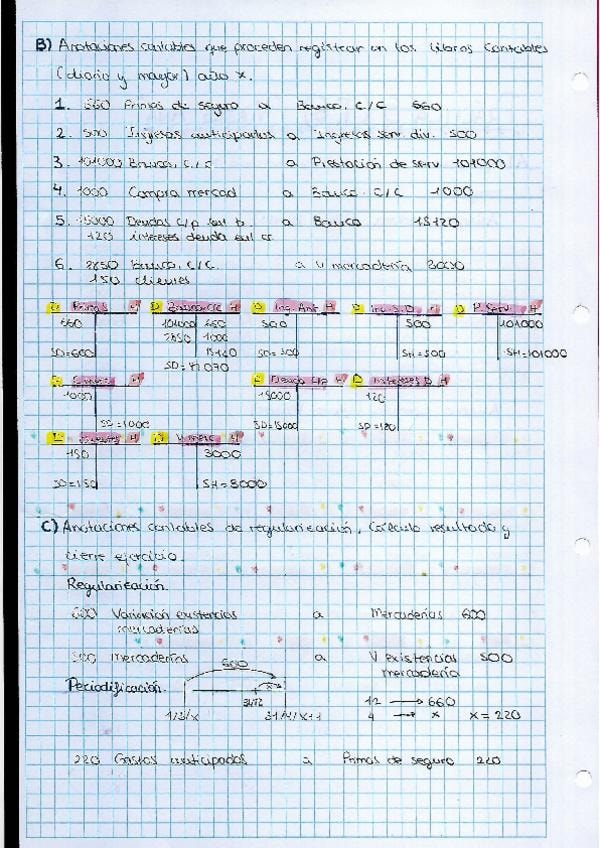 B) Anotaciones contables que proceden registrar en los Libros Contables
(diario y mayor) año x.
1. 660 Primas de seguro a Banco, C/C 660
2. 500 Ingresos anticipados a Ingresos serv. div. 500
3. 101000 Banco, C/C a Prestación de serv 101000
4. 1000 Compra mercad a Banco C/C 1000
5. 15000 Deudas C/p a Banco 15120
120 intereses deuda
6. 2850 Banco, C/C. a V mercadería 3000
150 clientes
D Primas H D Banco C/C H D Ing. Ant H D H D P. Serv. H
660 101000 660 500 500 101000
2850 1000
SD=600 15120 SD=500 SH=500 SH=101000
SD=
D H D Deuda C/p H D Intereses D H
1000 15000 120
SD=1000 SD=15000 SD=120
D H D V merc H
150 3000
SD=150 SH=3000
C) Anotaciones contables de regularización, Cálculo resultado y
cierre ejercicio.
Regularización.
600 Variación existencias a Mercaderías 600
mercaderías
500 mercaderías a V existencias 500
mercadería
Periodificación. 660
x
31/12 12 → 660
1/5/x 4 → x x = 220
220 Gastos anticipados a Primas de seguro 220